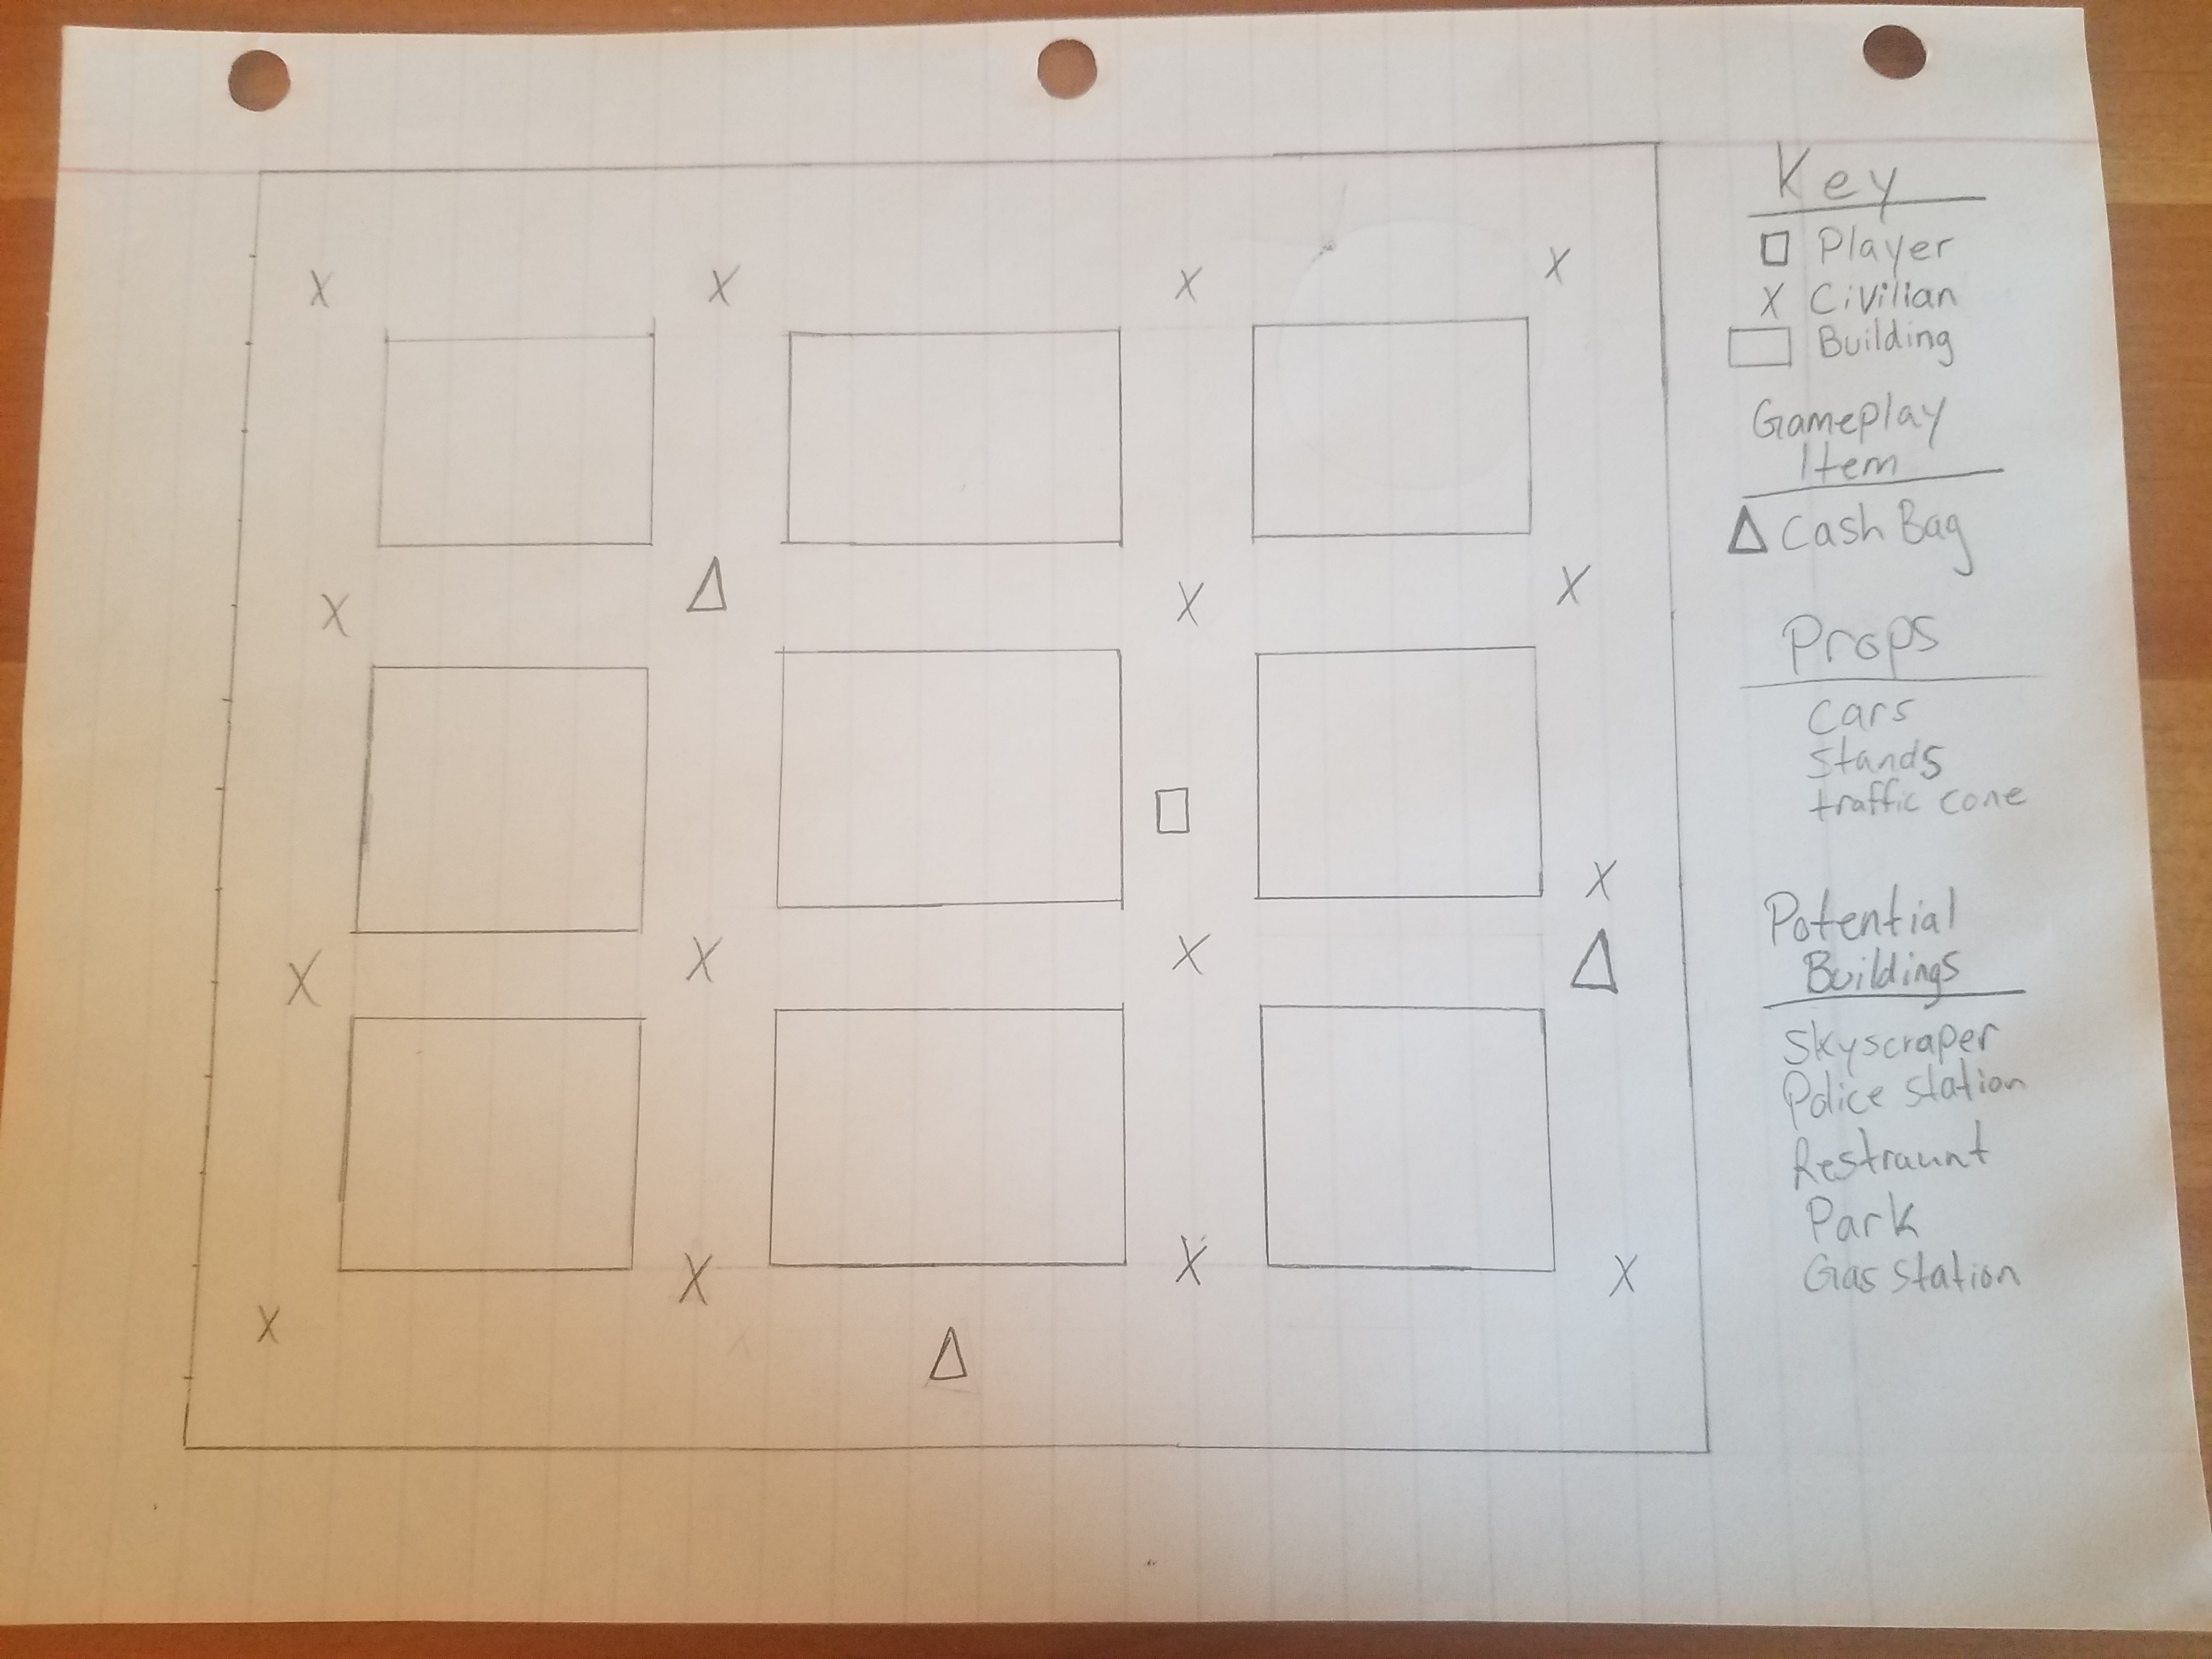 Key
Player
X Civilian
Building
Gameplay
Item
Cash Bag
Props
Cars
Stands
traffic cone
Potential
Buildings
Skyscraper
Police station
Restraunt
Park
Gas station